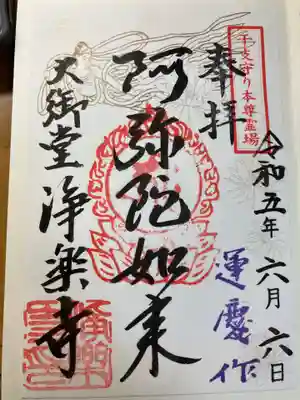 干支守り本尊霊場
奉拝
令和五年六月六日
運慶作
阿弥陀如来
大御堂浄楽寺